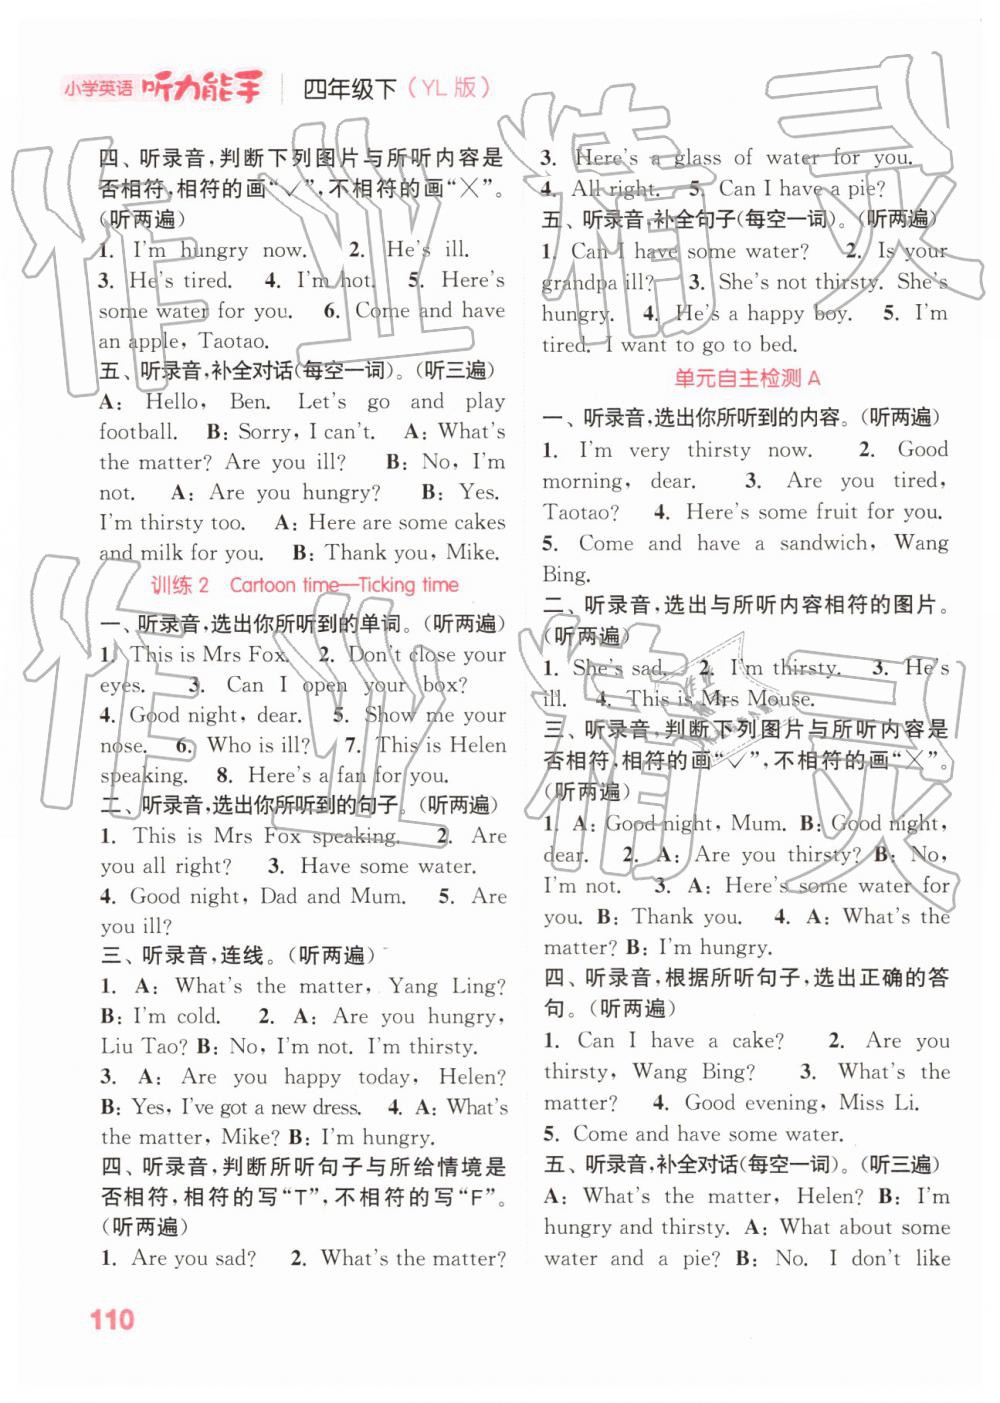 小学英语 听力能手 四年级下（YL 版）
四、听录音,判断下列图片与所听内容是
否相符,相符的画“√”,不相符的画“×”。
(听两遍)
1. I'm hungry now. 2. He's ill.
3. He's tired. 4. I'm hot. 5. Here's
some water for you. 6. Come and have
an apple, Taotao.
五、听录音,补全对话(每空一词)。(听三遍)
A: Hello, Ben. Let's go and play
football. B: Sorry, I can't. A: What's
the matter? Are you ill? B: No, I'm
not. A: Are you hungry? B: Yes.
I'm thirsty too. A: Here are some cakes
and milk for you. B: Thank you, Mike.
训练 2 Cartoon time—Ticking time
一、听录音,选出你所听到的单词。(听两遍)
1. This is Mrs Fox. 2. Don't close your
eyes. 3. Can I open your box?
4. Good night, dear. 5. Show me your
nose. 6. Who is ill? 7. This is Helen
speaking. 8. Here's a fan for you.
二、听录音,选出你所听到的句子。(听两遍)
1. This is Mrs Fox speaking. 2. Are
you all right? 3. Have some water.
4. Good night, Dad and Mum. 5. Are
you ill?
三、听录音,连线。(听两遍)
1. A: What's the matter, Yang Ling?
B: I'm cold. 2. A: Are you hungry,
Liu Tao? B: No, I'm not. I'm thirsty.
3. A: Are you happy today, Helen?
B: Yes, I've got a new dress. 4. A: What's
the matter, Mike? B: I'm hungry.
四、听录音,判断所听句子与所给情境是
否相符,相符的写“T”,不相符的写“F”。
(听两遍)
1. Are you sad? 2. What's the matter?
3. Here's a glass of water for you.
4. All right. 5. Can I have a pie?
五、听录音,补全句子(每空一词)。(听两遍)
1. Can I have some water? 2. Is your
grandpa ill? 3. She's not thirsty. She's
hungry. 4. He's a happy boy. 5. I'm
tired. I want to go to bed.
单元自主检测 A
一、听录音,选出你所听到的内容。(听两遍)
1. I'm very thirsty now. 2. Good
morning, dear. 3. Are you tired,
Taotao? 4. Here's some fruit for you.
5. Come and have a sandwich, Wang
Bing.
二、听录音,选出与所听内容相符的图片。
(听两遍)
1. She's sad. 2. I'm thirsty. 3. He's
ill. 4. This is Mrs Mouse.
三、听录音,判断下列图片与所听内容是
否相符,相符的画“√”,不相符的画“×”。
(听两遍)
1. A: Good night, Mum. B: Good night,
dear. 2. A: Are you thirsty? B: No,
I'm not. 3. A: Here's some water for
you. B: Thank you. 4. A: What's the
matter? B: I'm hungry.
四、听录音,根据所听句子,选出正确的答
句。(听两遍)
1. Can I have a cake? 2. Are you
thirsty, Wang Bing? 3. What's the
matter? 4. Good evening, Miss Li.
5. Come and have some water.
五、听录音,补全对话(每空一词)。(听三遍)
A: What's the matter, Helen? B: I'm
hungry and thirsty. A: What about some
water and a pie? B: No. I don't like
110
作业精灵
作业精灵